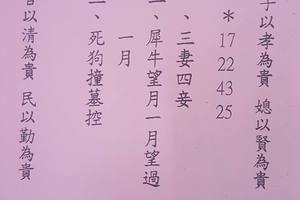 子以孝為貴 媳以賢為貴
＊17 22 43 25
、三妻四妾
、犀牛望月一月望過
一月
、死狗撞墓控
以清為貴 民以勤為貴